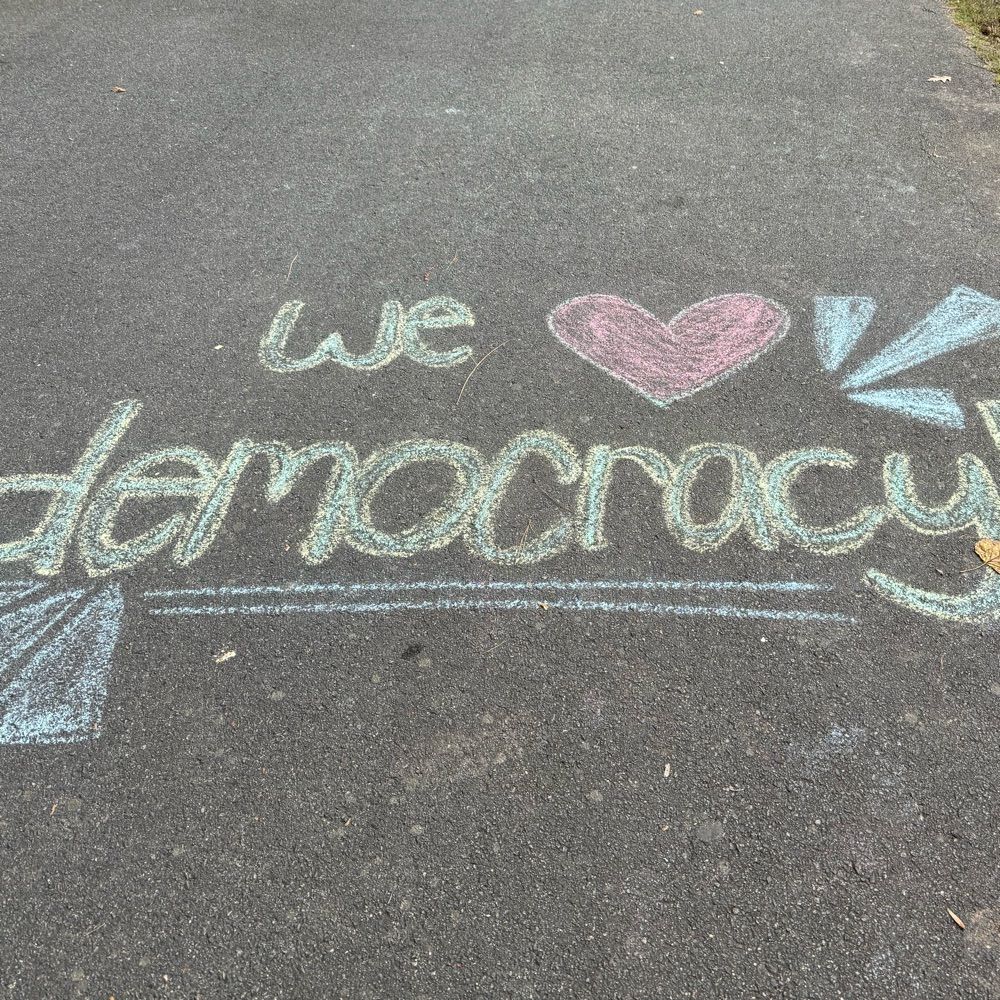 we ❤
democracy